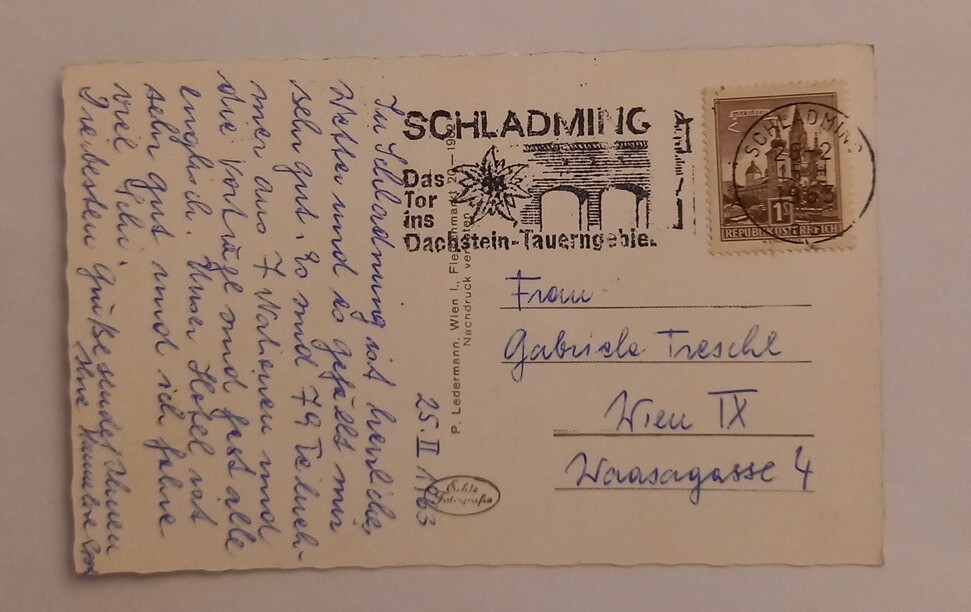 25.II 1963
In Schladming ist herrliches
Wetter und es gefällt mir
sehr gut. Es sind 79 Teilneh-
mer aus 7 Nationen und
die Vorträge sind fast alle
englisch. Unser Hotel ist
sehr gut und ich fahre
viel Schi.
Die besten Grüße sendet Ihnen
Ihre
SCHLADMING
Das
Tor
ins
Dachstein-Tauerngebiet
SCHLADMING
1963
REPUBLIK ÖSTERREICH
P. Ledermann, Wien I., Fleischmarkt 20 — 
Nachdruck verboten
Echte
Fotografie
Frau
Gabriele Treschl
Wien IX
Wasagasse 4